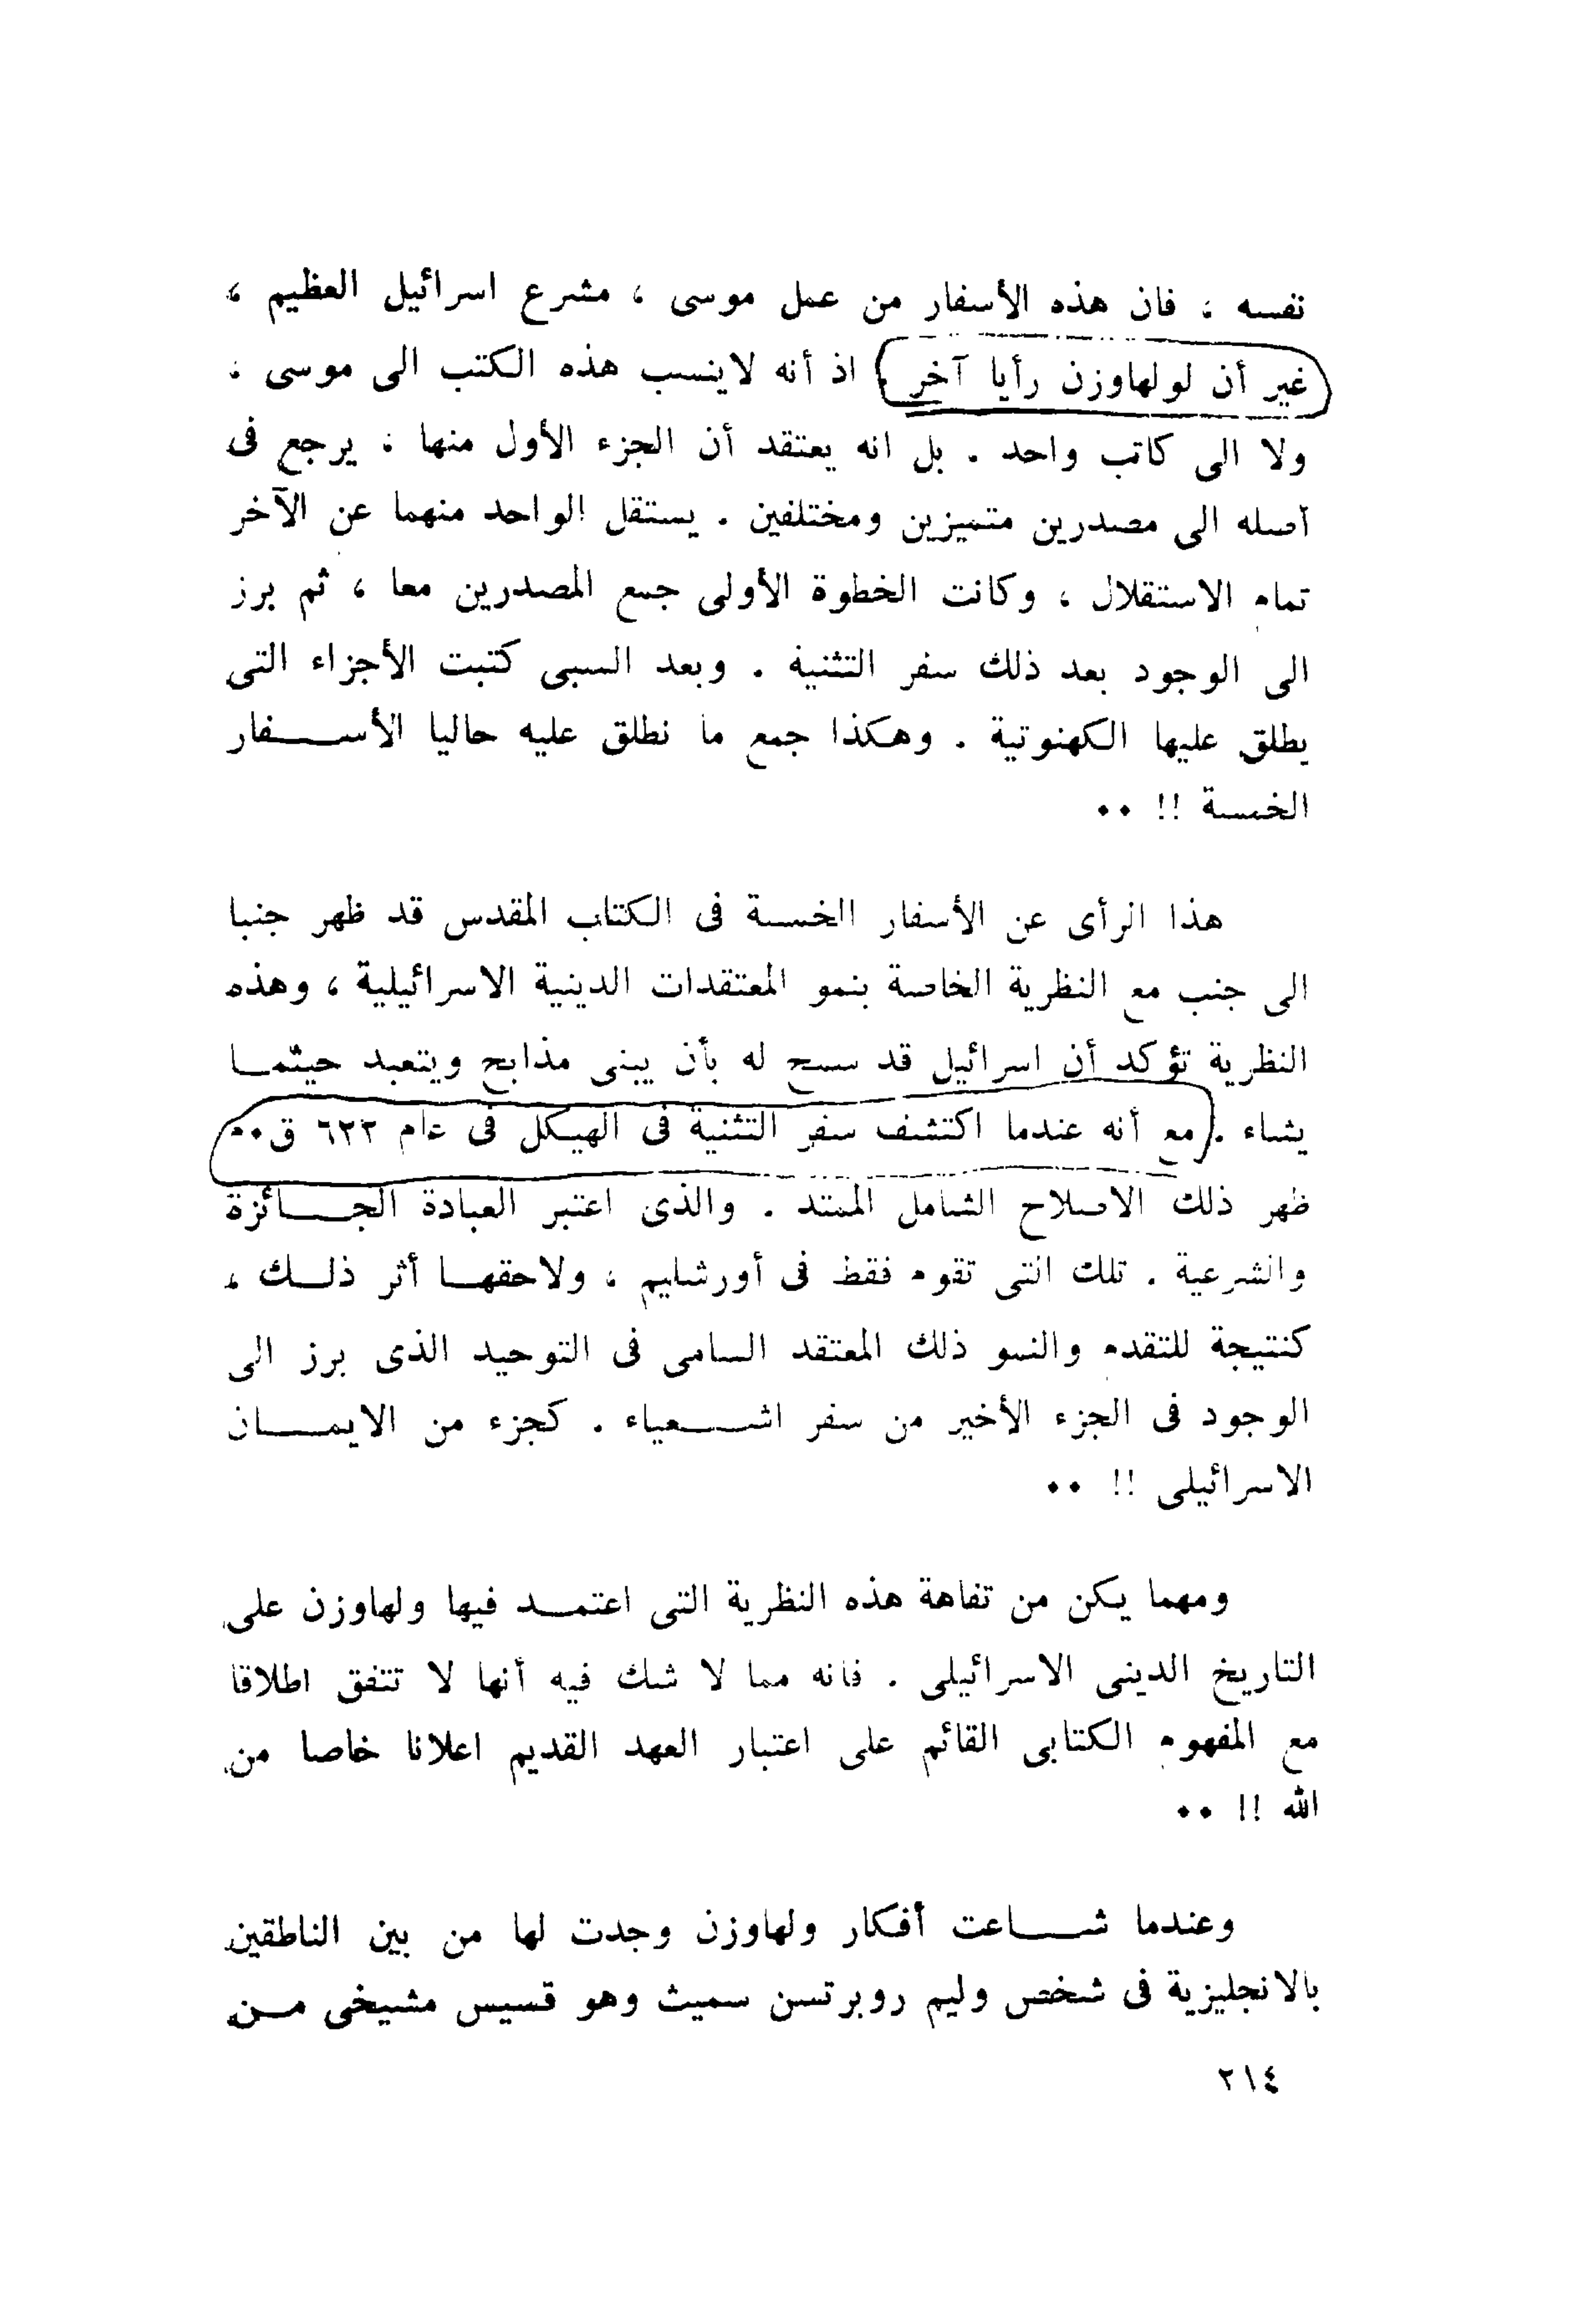 نفسه ، فان هذه الأسفار من عمل موسى ، مشرع اسرائيل العظيم ،
غير أن لولهاوزن رأيا آخر . اذ أنه لاينسب هذه الكتب الى موسى ،
ولا الى كاتب واحد . بل انه يعتقد أن الجزء الأول منها ، يرجع فى
أصله الى مصدرين متميزين ومختلفين . يستقل الواحد منهما عن الآخر
تمام الاستقلال ، وكانت الخطوة الأولى جمع المصدرين معا ، ثم برز
الى الوجود بعد ذلك سفر التثنية . وبعد السبى كتبت الأجزاء التى
يطلق عليها الكهنوتية . وهكذا جمع ما نطلق عليه حاليا الأســفار
الخمسة !! ٠٠
هذا الرأى عن الأسفار الخمسة فى الكتاب المقدس قد ظهر جنبا
الى جنب مع النظرية الخاصة بنمو المعتقدات الدينية الاسرائيلية ، وهذه
النظرية تؤكد أن اسرائيل قد سمح له بأن يبنى مذابح ويتعبد حيثمــا
يشاء . مع أنه عندما اكتشف سفر التثنية فى الهيكل فى عام ٦٢٢ ق٠م
ظهر ذلك الاصلاح الشامل الممتد . والذى اعتبر العبادة الجــائزة
والشرعية . تلك التى تقوم فقط فى أورشليم ، ولاحقهــا أثر ذلــك ،
كنتيجة للتقدم والنمو ذلك المعتقد السامى فى التوحيد الذى برز الى
الوجود فى الجزء الأخير من سفر اشــعياء . كجزء من الايمــان
الاسرائيلى !! ٠٠
ومهما يكن من تفاهة هذه النظرية التى اعتمــد فيها ولهاوزن على
التاريخ الدينى الاسرائيلى . فانه مما لا شك فيه أنها لا تتفق اطلاقا
مع المفهوم الكتابى القائم على اعتبار العهد القديم اعلانا خاصا من
الله !! ٠٠
وعندما شــاعت أفكار ولهاوزن وجدت لها من بين الناطقين
بالانجليزية فى شخص وليم روبرتسن سميث وهو قسيس مشيخى مــن
٢١٤